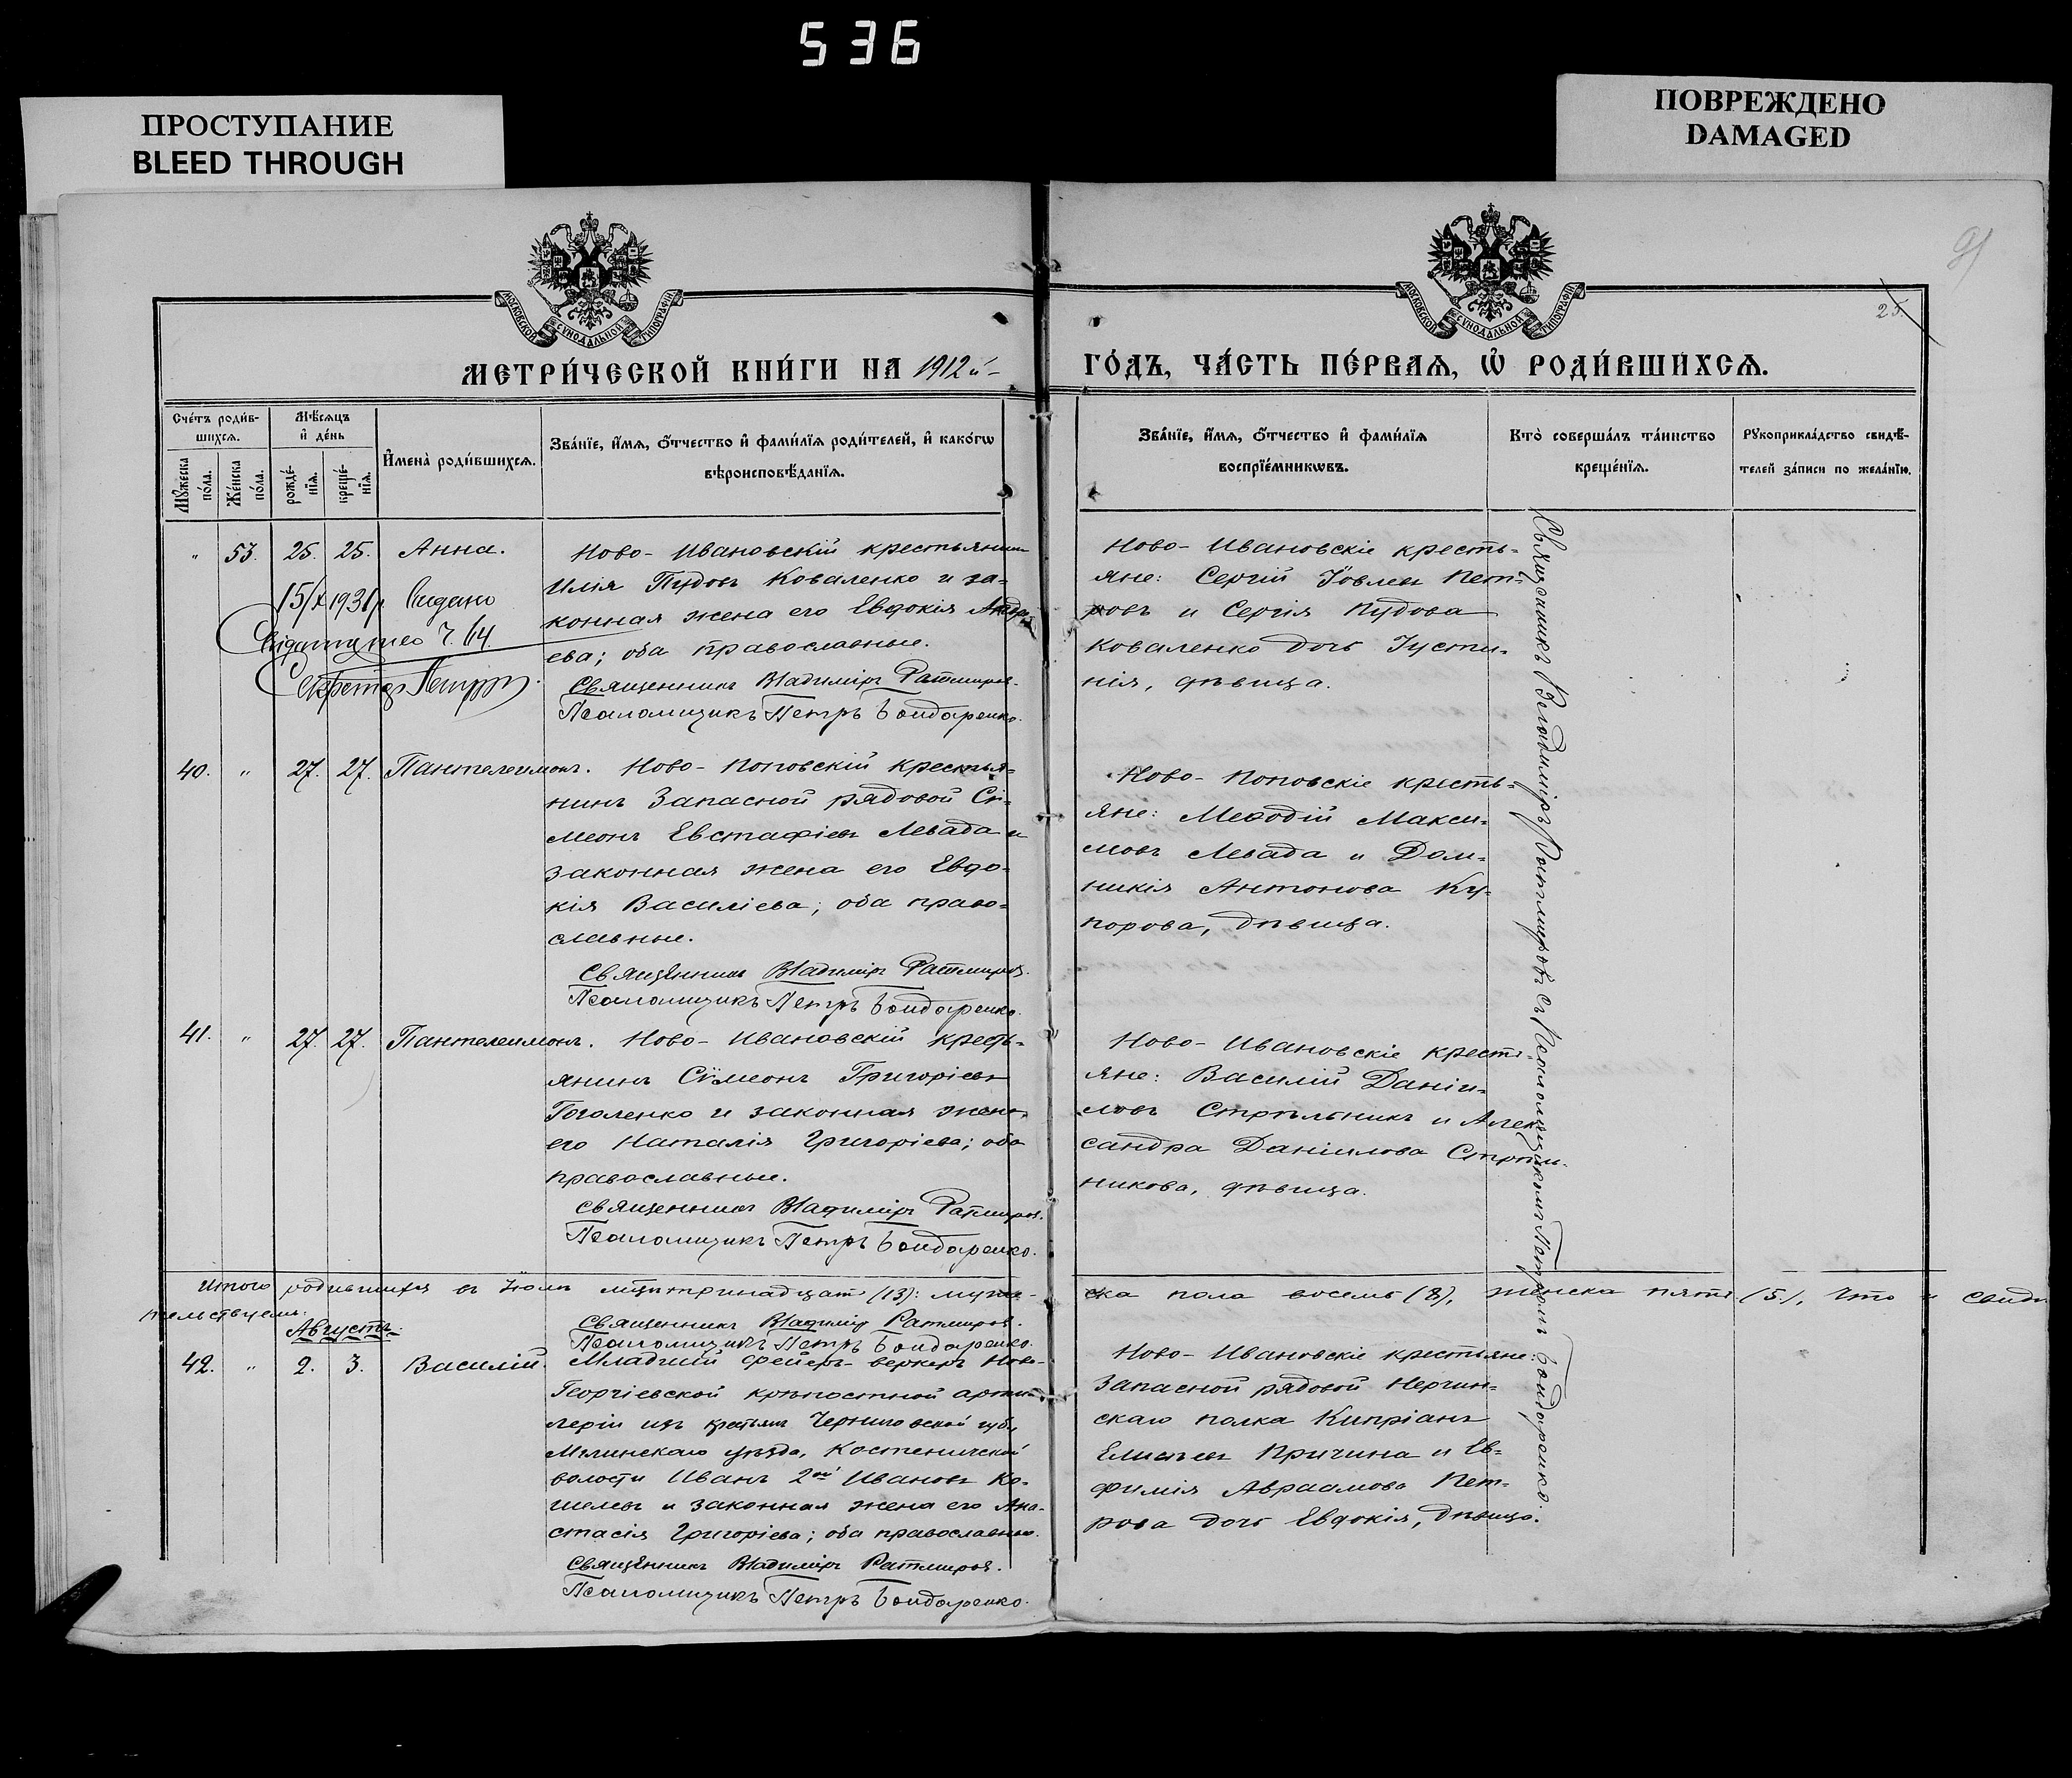 536
ПРОСТУПАНИЕ
BLEED THROUGH
ПОВРЕЖДЕНО
DAMAGED
МОСКОВСКОЙ СѴНОДАЛЬНОЙ ТИПОГРАФІИ
МОСКОВСКОЙ СѴНОДАЛЬНОЙ ТИПОГРАФІИ
91
25.
МЕТРИ́ЧЕСКОЙ КНИ́ГИ НА 1912й
ГО́ДЪ, ЧА́СТЬ ПЕ́РВАѦ, Ѡ҆ РОДИ́ВШИХСѦ.
Сче́тъ роди́в-
шихсѧ.
Мѣ́сѧцъ
и҆ де́нь
Мꙋ́жеска
по́ла.
Же́нска
по́ла.
рожде́-
нїѧ.
креще́-
нїѧ.
И҆мена̀ роди́вшихсѧ.
Зва́нїе, и҆́мѧ, ѻ҆́тчество и҆ фами́лїѧ роди́телей, и҆ како́гѡ
вѣроисповѣ́данїѧ.
Зва́нїе, и҆́мѧ, ѻ҆́тчество и҆ фами́лїѧ
воспрїе́мникѡвъ.
Кто̀ соверша́лъ та́инство
креще́нїѧ.
Рꙋкоприкла́дство свидѣ́-
телей за́писи по жела́нїю.
" 53. 25. 25. Анна.
Ново-Ивановскій крестьянинъ
Илія Пудовъ Коваленко и за-
конная жена его Евдокія Андре
ева; оба православные.
Священникъ Владиміръ Ратмировъ.
Псаломщикъ Петръ Бондаренко.
15/X 1931р. Видано
Свідоцтво Ч. 64
Ново-Ивановскіе кресть-
яне: Сергій Іовлевъ Пет-
ровъ и Сергія Пудова
Коваленко дочь Іусти-
нія, дѣвица.
40. " 27. 27. Пантелеимонъ.
Ново-Поповскій крестья-
нинъ Запасной рядовой Си-
меонъ Евстафіевъ Левада и
законная жена его Евдо-
кія Василіева; оба право-
славные.
Священникъ Владиміръ Ратмировъ.
Псаломщикъ Петръ Бондаренко.
Ново-Поповскіе кресть-
яне: Меѳодій Макси-
мовъ Левада и Дом-
никія Антонова Ку-
порова, дѣвица.
41. " 27. 27. Пантелеимонъ.
Ново-Ивановскій кресть-
янинъ Сѵмеонъ Григоріевъ
Гоголенко и законная жена
его Наталія Григоріева; оба
православные.
Священникъ Владиміръ Ратмировъ.
Псаломщикъ Петръ Бондаренко.
Ново-Ивановскіе кресть-
яне: Василій Даніи-
ловъ Стрѣльникъ и Алек-
сандра Даніилова Стрѣль-
никова, дѣвица.
Итого родившихся въ Іюлѣ м-цѣ тринадцать (13): муже-
ска пола восемь (8), женска пять (5), что и свидѣ
тельствуемъ.
Священникъ Владиміръ Ратмировъ.
Псаломщикъ Петръ Бондаренко.
Августъ:
42. " 2. 3. Василій.
Младшій фейерверкеръ Ново-
Георгіевской крѣпостной артил-
леріи изъ крестьянъ Черниговской губ.,
Мглинскаго уѣзда, Костеничской
волости Иванъ 2ой Ивановъ Ко-
шелевъ и законная жена его Ана-
стасія Григоріева; оба православные.
Священникъ Владиміръ Ратмировъ.
Псаломщикъ Петръ Бондаренко.
Ново-Ивановскіе крестьяне:
Запасной рядовой Нерчин-
скаго полка Кипріанъ
Елисѣевъ Причина и Ев-
фимія Авраамова Пет-
рова дочь Евдокія, дѣвица.
Священникъ Владиміръ Ратмировъ съ Псаломщикомъ Петромъ Бондаренко.